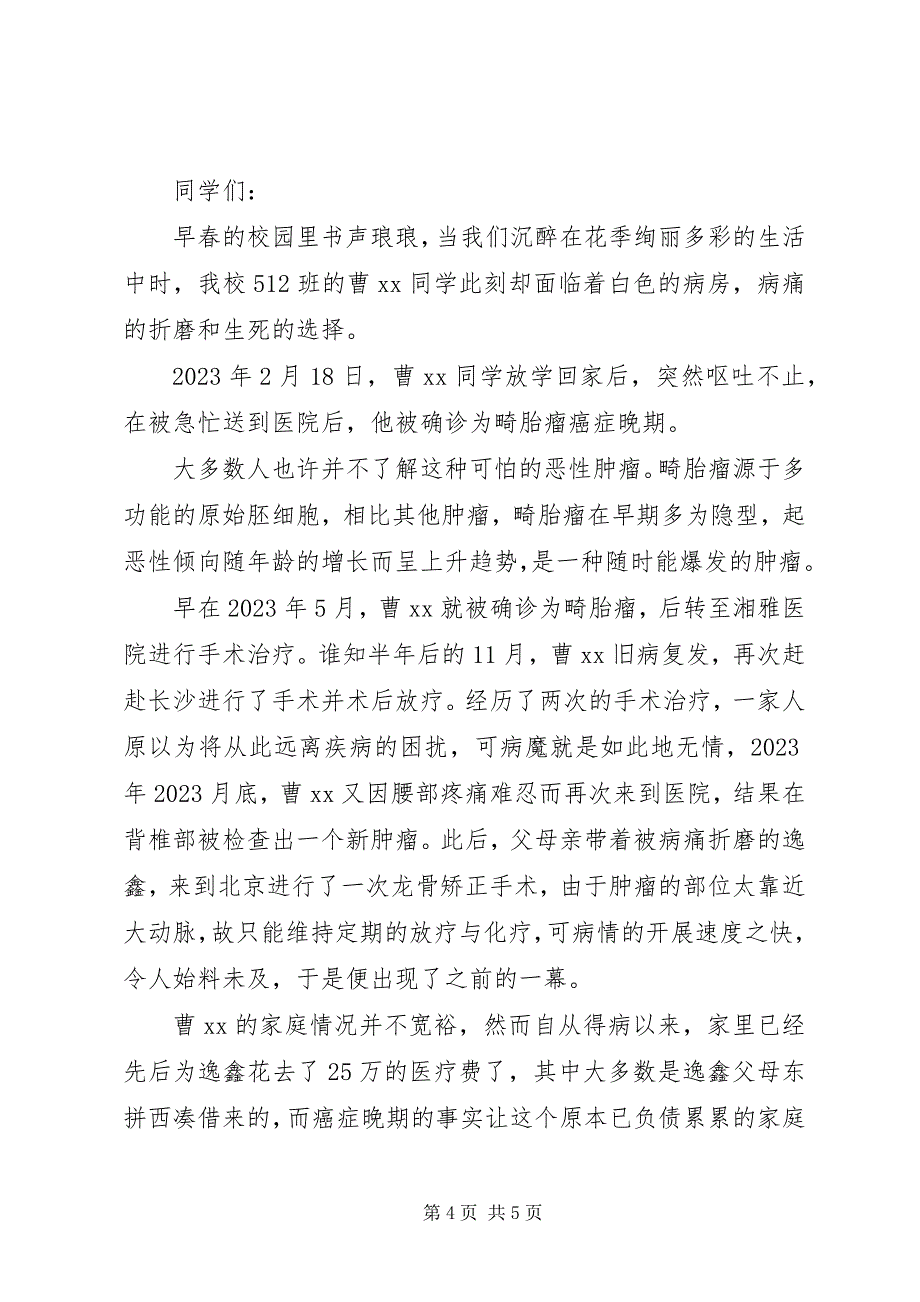 同学们：
早春的校园里书声琅琅，当我们沉醉在花季绚丽多彩的生活
中时，我校 512 班的曹 xx 同学此刻却面临着白色的病房，病痛
的折磨和生死的选择。
2023 年 2 月 18 日，曹 xx 同学放学回家后，突然呕吐不止，
在被急忙送到医院后，他被确诊为畸胎瘤癌症晚期。
大多数人也许并不了解这种可怕的恶性肿瘤。畸胎瘤源于多
功能的原始胚细胞，相比其他肿瘤，畸胎瘤在早期多为隐型，起
恶性倾向随年龄的增长而呈上升趋势，是一种随时能爆发的肿瘤。
早在 2023 年 5 月，曹 xx 就被确诊为畸胎瘤，后转至湘雅医
院进行手术治疗。谁知半年后的 11 月，曹 xx 旧病复发，再次赶
赴长沙进行了手术并术后放疗。经历了两次的手术治疗，一家人
原以为将从此远离疾病的困扰，可病魔就是如此地无情，2023
年 2023 月底，曹 xx 又因腰部疼痛难忍而再次来到医院，结果在
背椎部被检查出一个新肿瘤。此后，父母亲带着被病痛折磨的逸
鑫，来到北京进行了一次龙骨矫正手术，由于肿瘤的部位太靠近
大动脉，故只能维持定期的放疗与化疗，可病情的开展速度之快，
令人始料未及，于是便出现了之前的一幕。
曹 xx 的家庭情况并不宽裕，然而自从得病以来，家里已经
先后为逸鑫花去了 25 万的医疗费了，其中大多数是逸鑫父母东
拼西凑借来的，而癌症晚期的事实让这个原本已负债累累的家庭
第 4 页 共 5 页